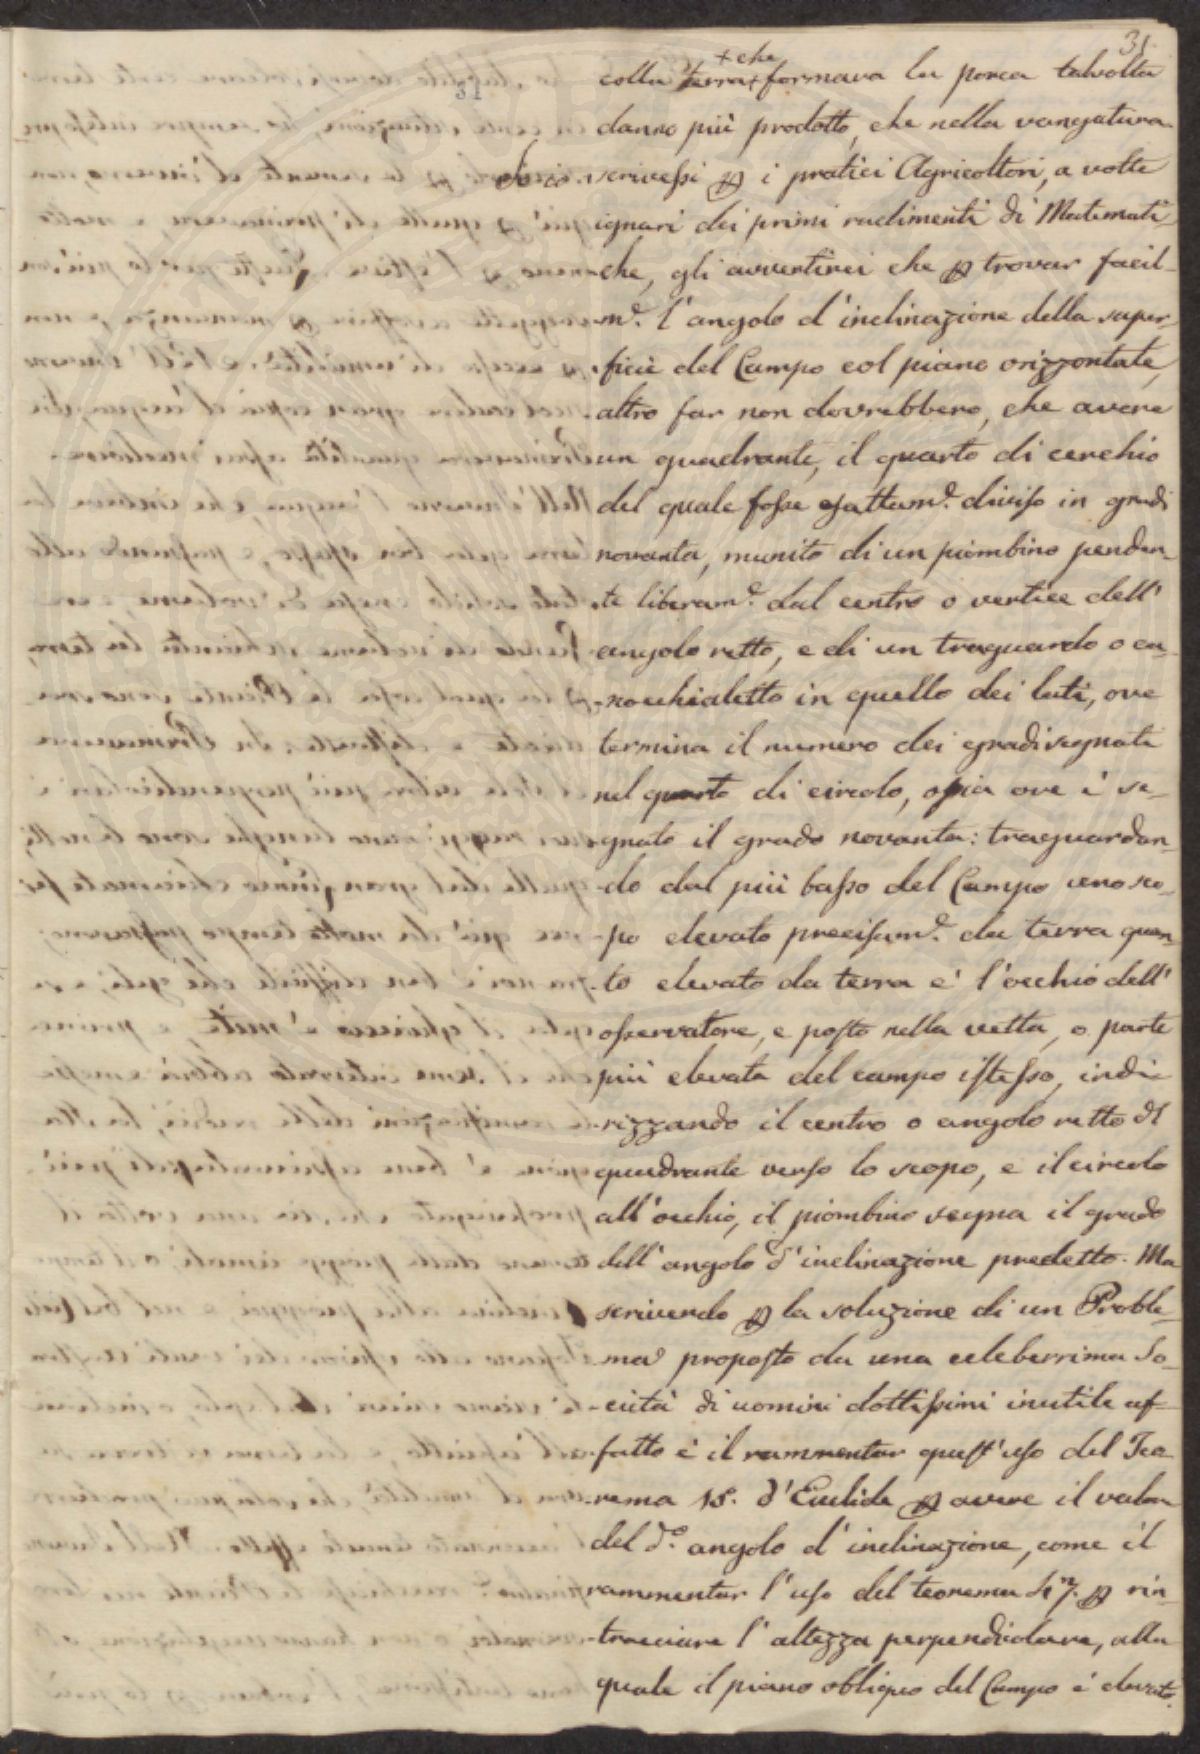 31.
+ che
colla terra + formava la porca talvolta
danno più prodotto, che nella vangatura.
Se io scrivessi p i pratici Agricoltori, a volte
ignari dei primi rudimenti di Matemati-
che, gli avvertirei che p trovar facil-
m.e l'angolo d'inclinazione della super-
ficie del Campo col piano orizzontale,
altro far non dovrebbero, che avere
un quadrante, il quarto di cerchio
del quale fosse esattam.e diviso in gradi
novanta, munito di un piombino penden-
te liberam.e dal centro o vertice dell'
angolo retto, e di un traguardo o ca-
nocchialetto in quello dei lati, ove
termina il numero dei gradi segnati
nel quarto di circolo, ossia ove è se-
gnato il grado novanta: traguardan-
do dal più basso del Campo uno sco-
po elevato precisam.e da terra quan-
to elevato da terra e' l'occhio dell'
osservatore, e posto nella vetta, o parte
più elevata del campo istesso, indi-
rizzando il centro o angolo retto dl
quadrante verso lo scopo, e il circolo
all'occhio, il piombino segna il grado
dell'angolo d'inclinazione predetto. Ma
scrivendo p la soluzione di un Proble-
ma proposto da una celeberrima So-
cietà di uomini dottissimi inutile af-
fatto è il rammentar quest'uso del Teo-
rema 15. d'Euclide p avere il valor
del d.o angolo d'inclinazione, come il
rammentar l'uso del teorema 47. p rin-
tracciare l'altezza perpendicolare, alla
quale il piano obliquo del Campo è elevato.